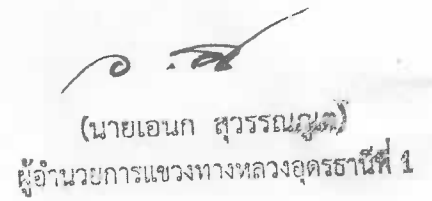 (นายเอนก
ผู้อำนวยการแขวงทางหลวงอุดรธานีที่ 1